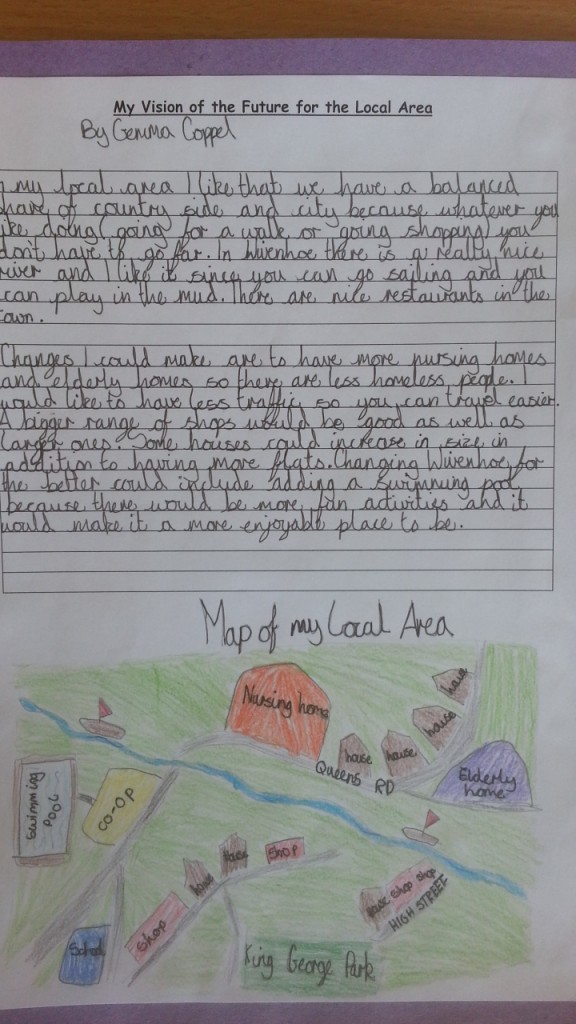 My Vision of the Future for the Local Area
By Gemma Coppel
my local area I like that we have a balanced
share of country side and city because whatever you
like doing (going for a walk or going shopping) you
don't have to go far. In Wivenhoe there is a really nice
river and I like it since you can go sailing and you
can play in the mud. There are nice restaurants in the
town.
Changes I could make are to have more nursing homes
and elderly homes so there are less homeless people. I
would like to have less traffic so you can travel easier.
A bigger range of shops would be good as well as
larger ones. Some houses could increase in size in
addition to having more flats. Changing Wivenhoe for
the better could include adding a swimming pool
because there would be more fun activities and it
would make it a more enjoyable place to be.
Map of my Local Area
Nursing home
house
house
house
house
Queens RD
Elderly
home
Swimming
Pool
CO-OP
house
House
Shop
Shop
House Shop Shop
HIGH STREET
School
King George Park